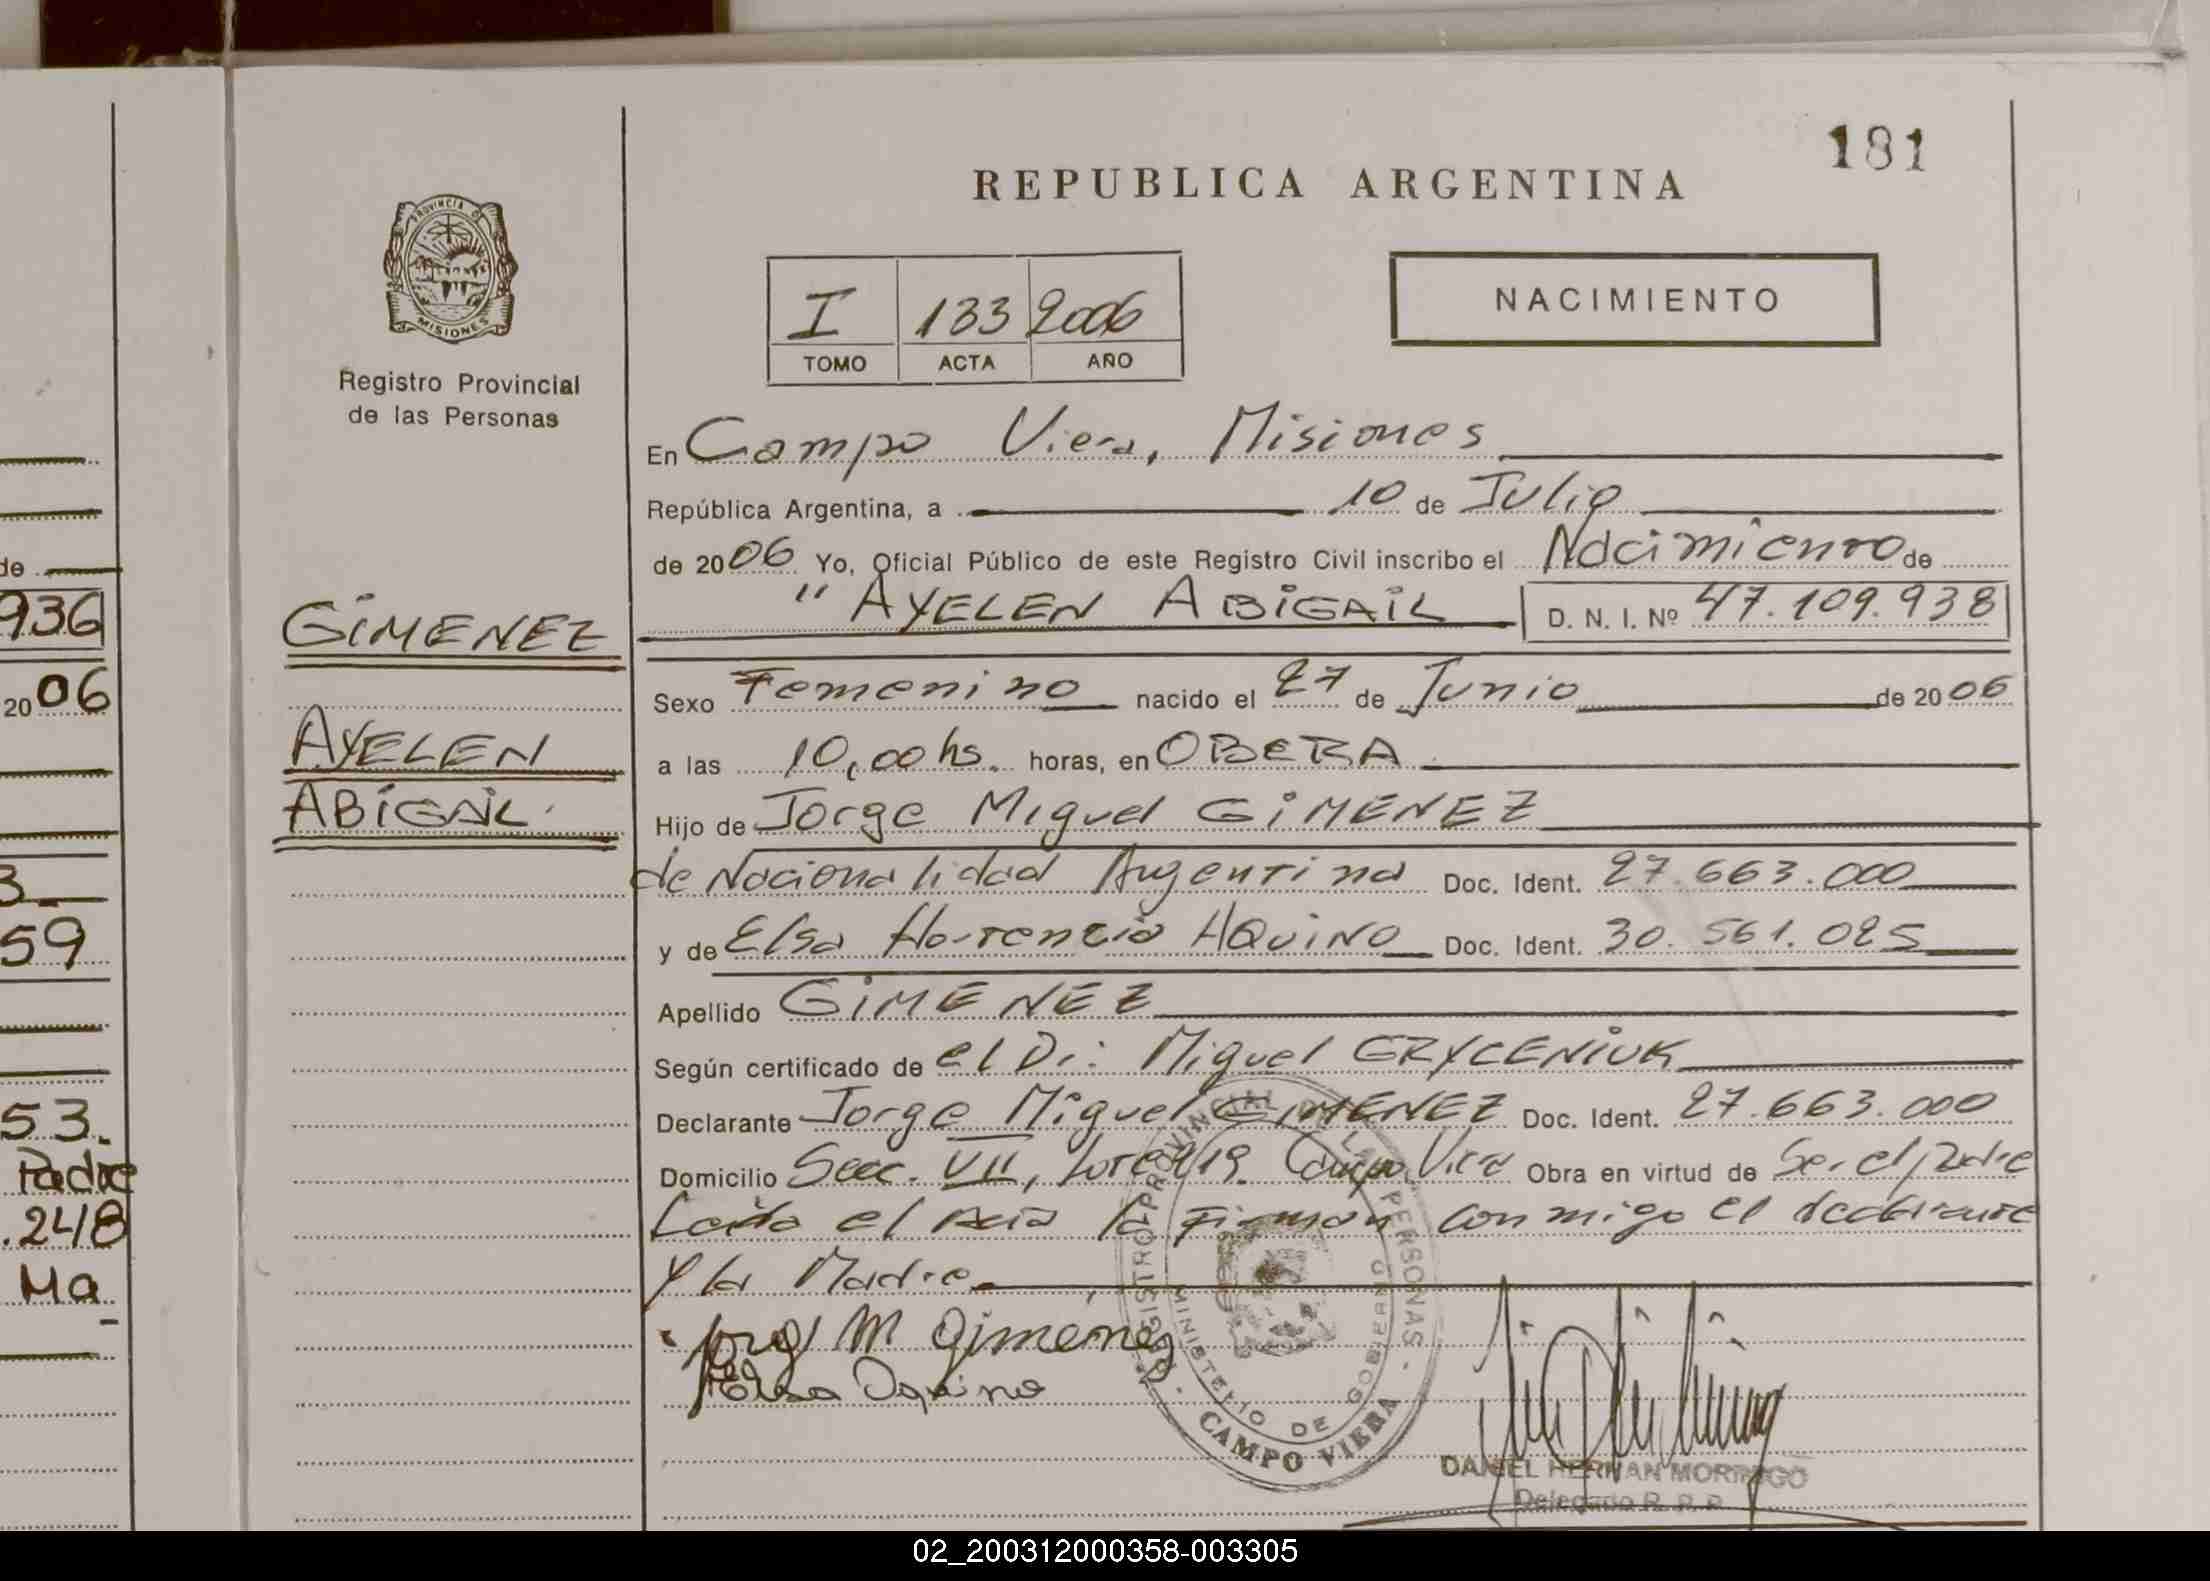 181
REPUBLICA ARGENTINA
PROVINCIA DE
MISIONES
Registro Provincial
de las Personas
I 133 2006
TOMO ACTA AÑO
NACIMIENTO
En Campo Viera, Misiones
República Argentina, a 10 de Julio
de 2006 Yo, Oficial Público de este Registro Civil inscribo el Nacimiento de
" AYELEN ABIGAIL D. N. I. Nº 47.109.938
GIMENEZ
AYELEN
ABIGAIL.
Sexo Femenino nacido el 27 de Junio de 2006
a las 10,00 hs. horas, en OBERA
Hijo de Jorge Miguel GIMENEZ
de Nacionalidad Argentina Doc. Ident. 27.663.000
y de Elsa Hortencia AQUINO Doc. Ident. 30.561.025
Apellido GIMENEZ
Según certificado de el Dr: Miguel GRYCENIUK
Declarante Jorge Miguel GIMENEZ Doc. Ident. 27.663.000
Domicilio Secc. VII, Lote 219. Campo Viera Obra en virtud de Ser el padre
Leída el Acta la Firman conmigo el declarante
y la Madre.
Jorge M Gimenez
Elsa Aquino
REGISTRO PROVINCIAL DE LAS PERSONAS
MINISTERIO DE GOBIERNO
CAMPO VIERA
DANIEL HERNAN MORINIGO
Delegado R. P. P.
de
936
2006
3
59
53.
Padre
.248
Ma
02_200312000358-003305